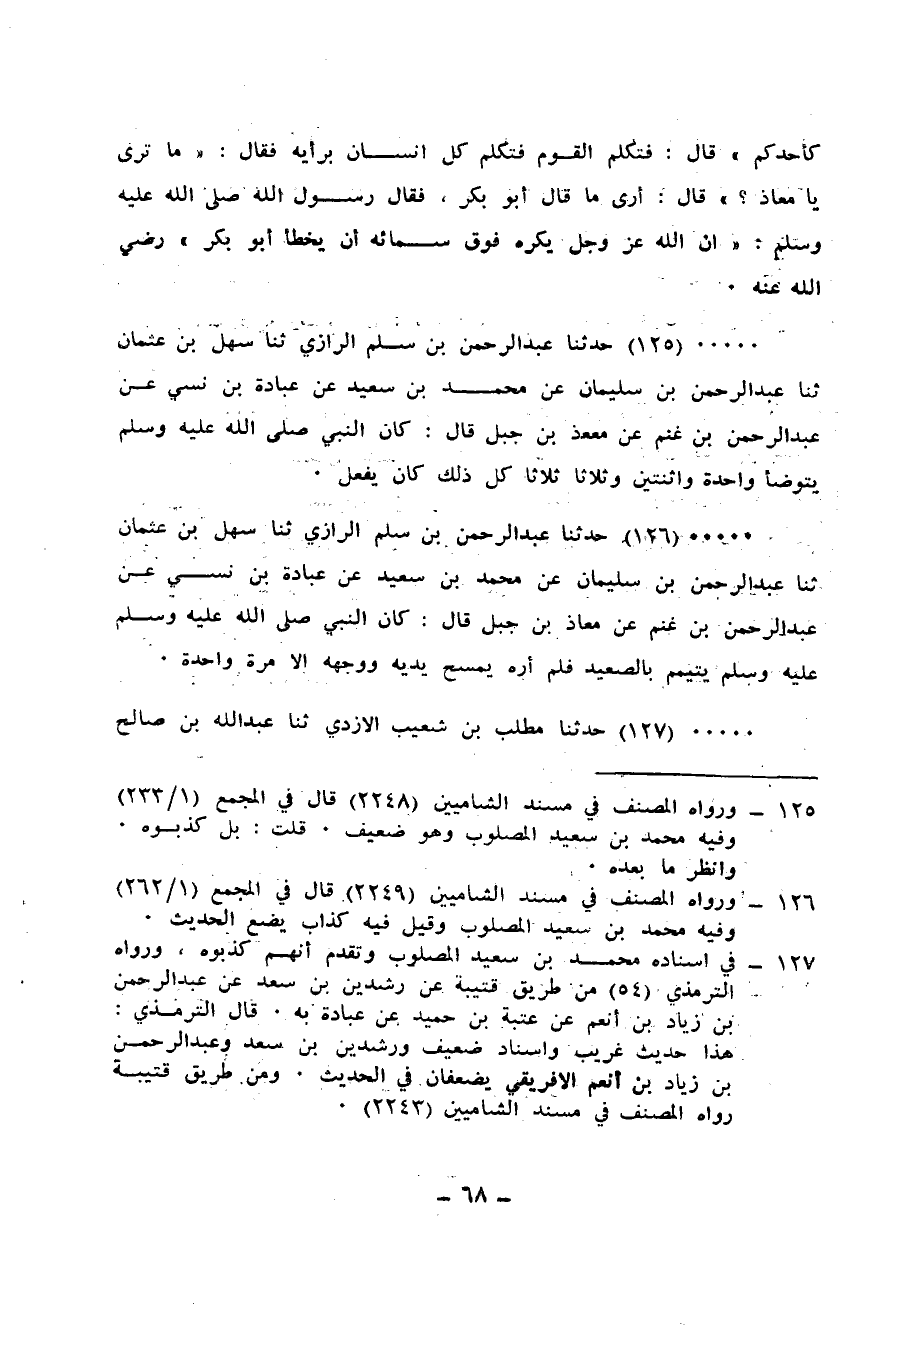 كأحدكم » قال : فتكلم القوم فتكلم كل انسان برأيه فقال : « ما ترى
يا معاذ ؟ » قال : أرى ما قال أبو بكر ، فقال رسول الله صلى الله عليه
وسلم : « ان الله عز وجل يكره فوق سمائه أن يخطأ أبو بكر » رضي
الله عنه ٠
٠٠٠٠٠ (١٢٥) حدثنا عبدالرحمن بن سلم الرازي ثنا سهل بن عثمان
ثنا عبدالرحمن بن سليمان عن محمد بن سعيد عن عبادة بن نسي عن
عبدالرحمن بن غنم عن مععذ بن جبل قال : كان النبي صلى الله عليه وسلم
يتوضأ واحدة واثنتين وثلاثا ثلاثا كل ذلك كان يفعل ٠
٠٠٠٠٠ (١٢٦) حدثنا عبدالرحمن بن سلم الرازي ثنا سهل بن عثمان
ثنا عبدالرحمن بن سليمان عن محمد بن سعيد عن عبادة بن نسي عن
عبدالرحمن بن غنم عن معاذ بن جبل قال : كان النبي صلى الله عليه وسلم
عليه وسلم يتيمم بالصعيد فلم أره يمسح يديه ووجهه الا مرة واحدة ٠
٠٠٠٠٠ (١٢٧) حدثنا مطلب بن شعيب الازدي ثنا عبدالله بن صالح
١٢٥ – ورواه المصنف في مسند الشاميين (٢٢٤٨) قال في المجمع (٢٣٣/١)
وفيه محمد بن سعيد المصلوب وهو ضعيف ٠ قلت : بل كذبوه ٠
وانظر ما بعده ٠
١٢٦ – ورواه المصنف في مسند الشاميين (٢٢٤٩) قال في المجمع (٢٦٢/١)
وفيه محمد بن سعيد المصلوب وقيل فيه كذاب يضع الحديث ٠
١٢٧ – في اسناده محمد بن سعيد المصلوب وتقدم أنهم كذبوه ، ورواه
الترمذي (٥٤) من طريق قتيبة عن رشدين بن سعد عن عبدالرحمن
بن زياد بن أنعم عن عتبة بن حميد عن عبادة به ٠ قال الترمذي :
هذا حديث غريب واسناد ضعيف ورشدين بن سعد وعبدالرحمن
بن زياد بن أنعم الافريقي يضعفان في الحديث ٠ ومن طريق قتيبة
رواه المصنف في مسند الشاميين (٢٢٤٣) ٠
– ٦٨ –